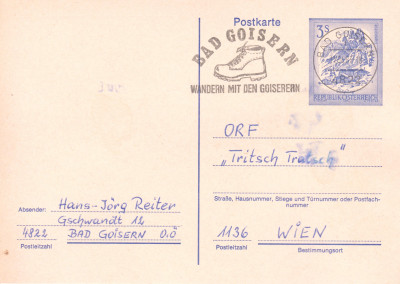 Postkarte
BAD GOISERN
WANDERN MIT DEN GOISERERN
3 S
BAD GOISERN
REPUBLIK ÖSTERREICH
ORF
„Tritsch Tratsch"
Straße, Hausnummer, Stiege und Türnummer oder Postfach-
nummer
Absender: Hans-Jörg Reiter
Gschwandt 12
4822 BAD GOISERN O.Ö
Postleitzahl
1136 WIEN
Postleitzahl Bestimmungsort